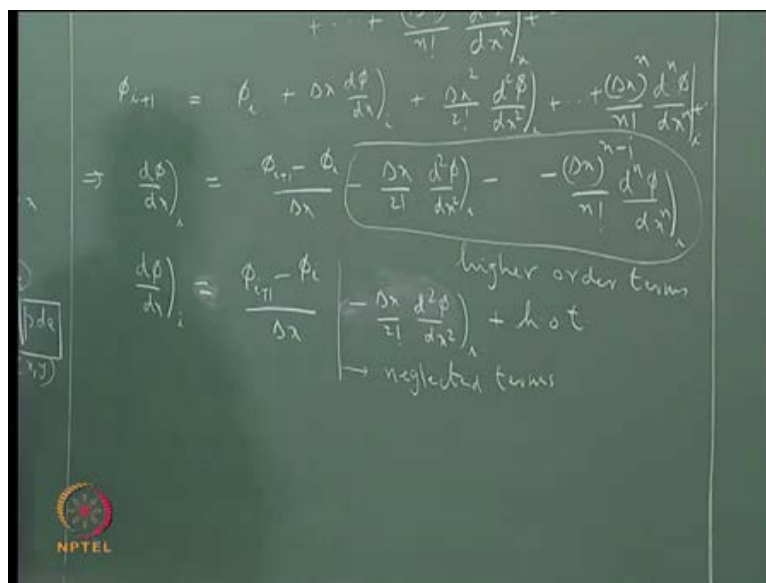 + ⋯ + (Δx)ⁿ/n! dⁿφ/dxⁿ)ₓ +
φᵢ₊₁ = φᵢ + Δx dφ/dx)ᵢ + Δx²/2! d²φ/dx²)ᵢ + ⋯ + (Δx)ⁿ/n! dⁿφ/dxⁿ)ᵢ +
⇒ dφ/dx)ᵢ = (φᵢ₊₁ − φᵢ)/Δx − Δx/2! d²φ/dx²)ᵢ − − (Δx)ⁿ⁻¹/n! dⁿφ/dxⁿ)ᵢ
higher order terms
dφ/dx)ᵢ = (φᵢ₊₁ − φᵢ)/Δx | − Δx/2! d²φ/dx²)ᵢ + h o t
→ neglected terms
pde
x, y)
NPTEL